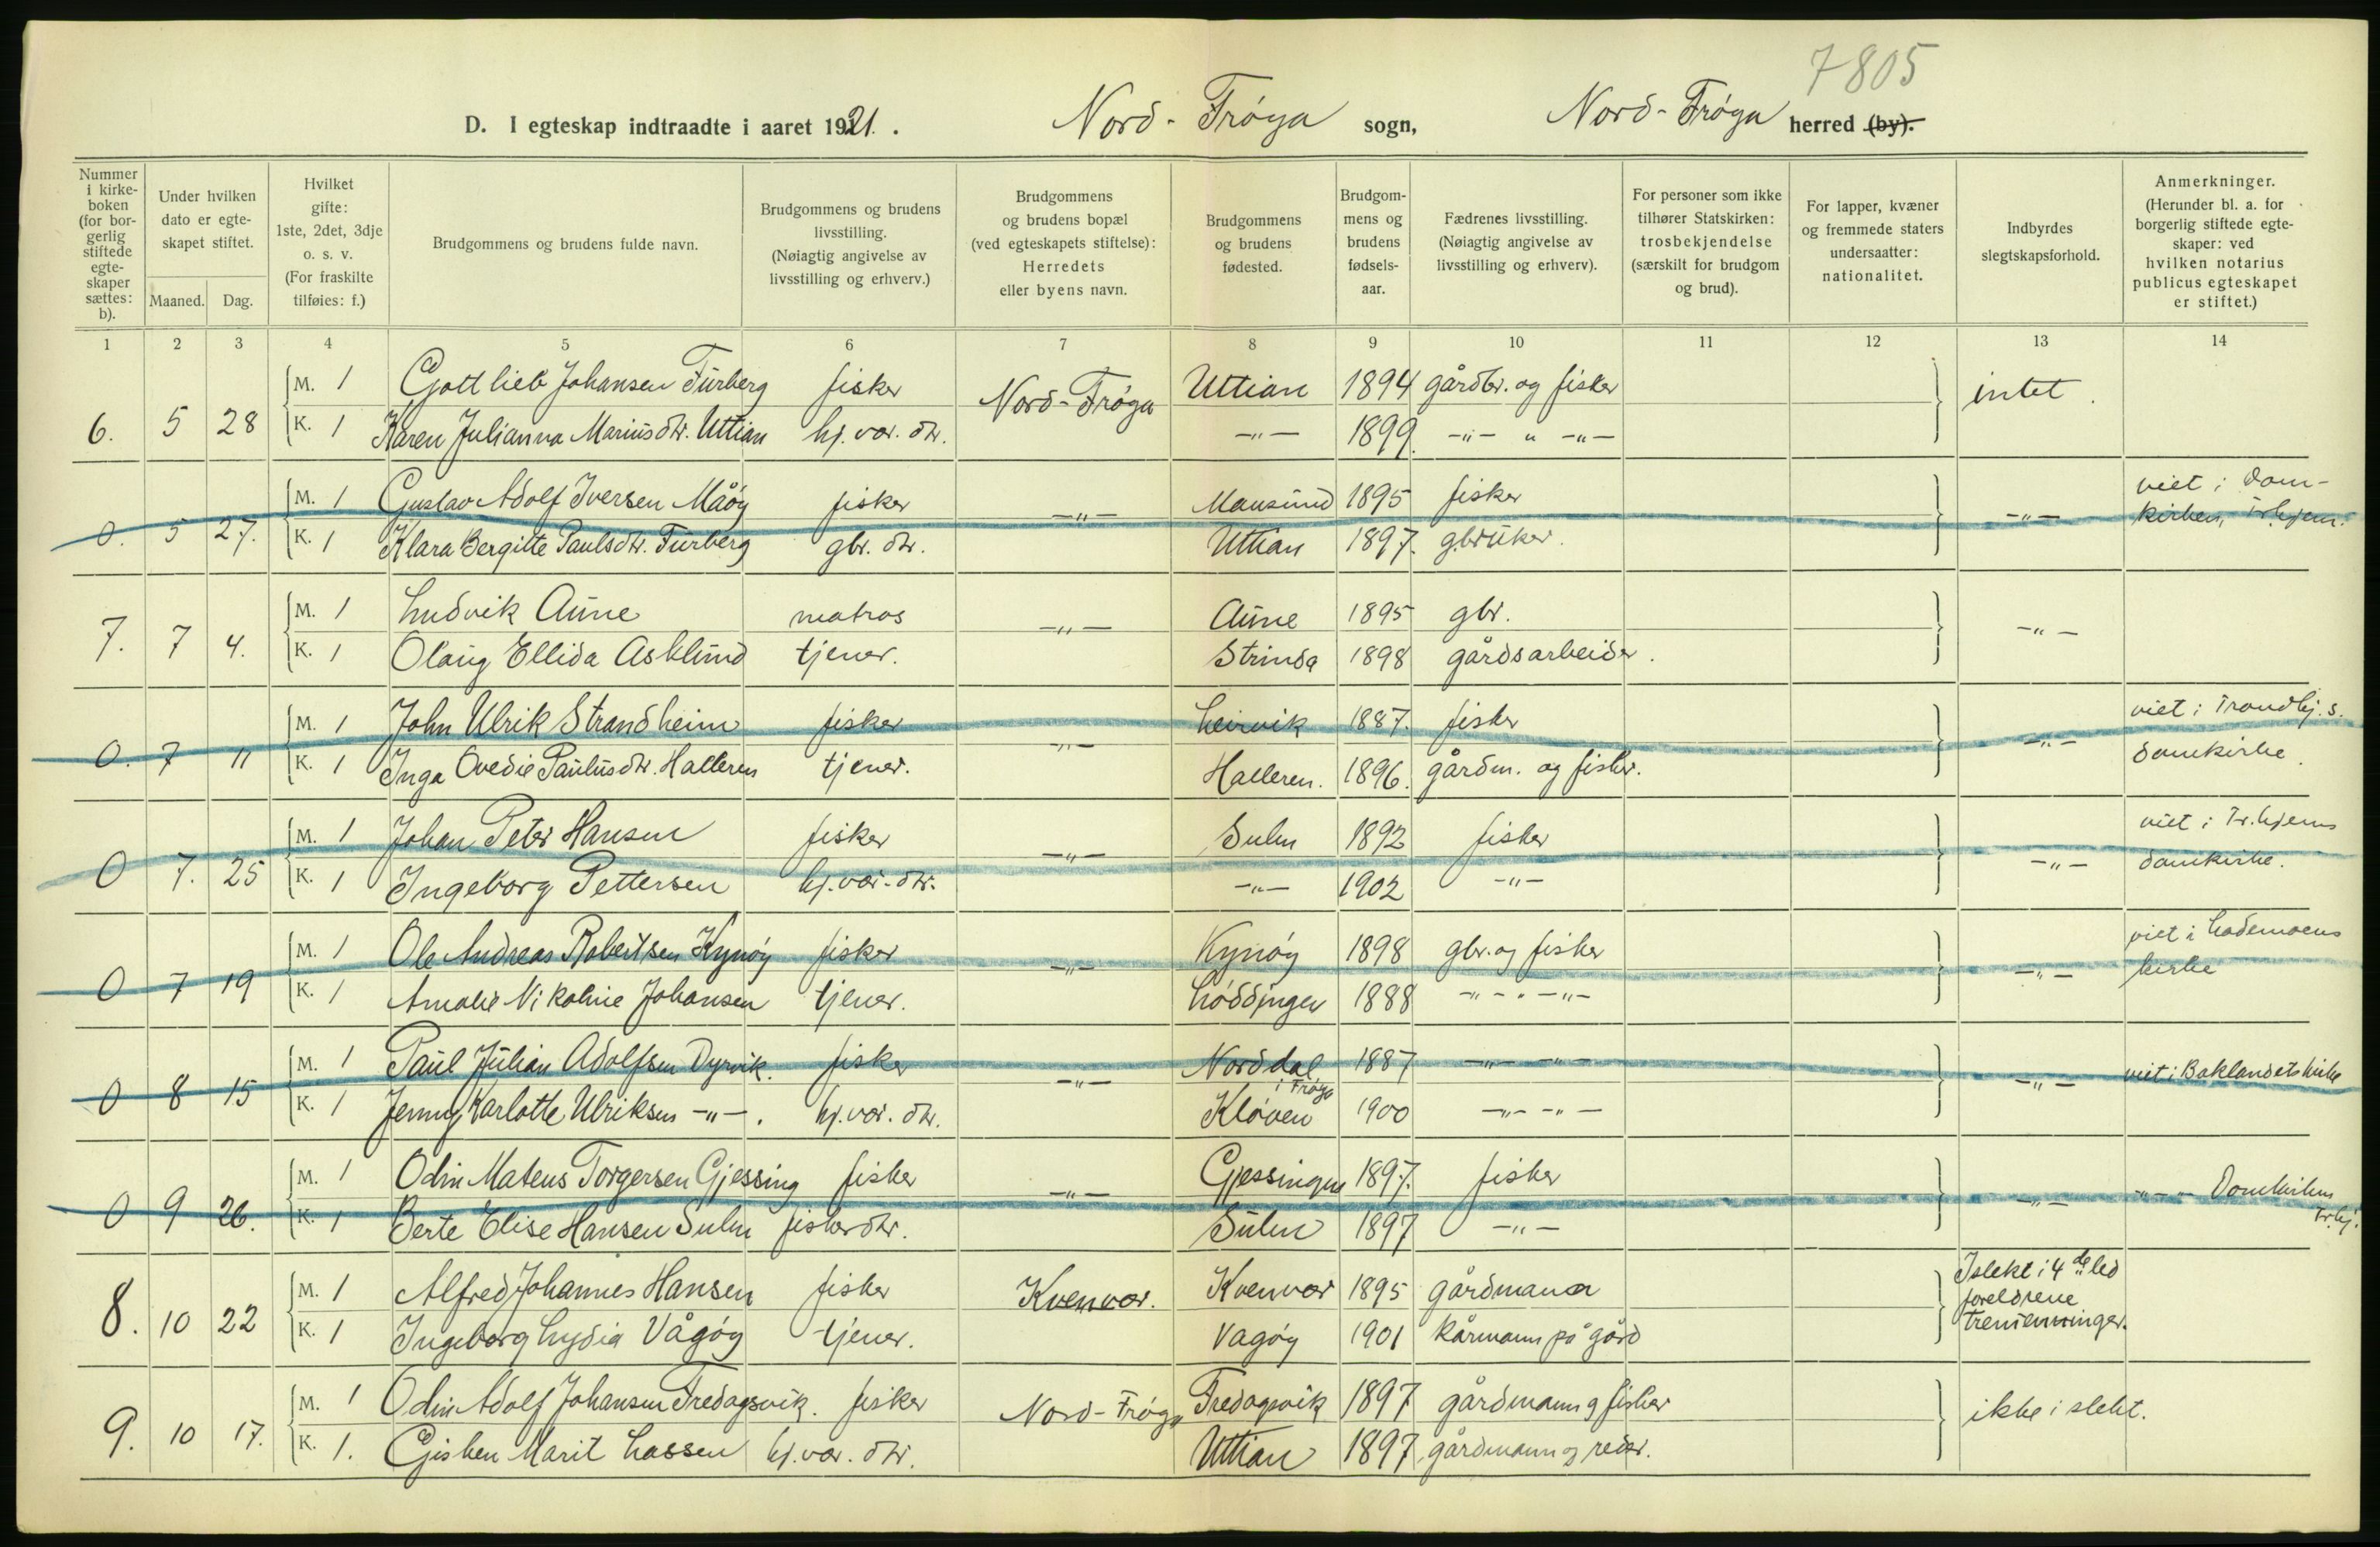 7805
D. I egteskap indtraadte i aaret 1921. Nord-Frøya sogn, Nord-Frøya herred (by).
Nummer i kirkeboken (for borgerlig stiftede egteskaper sættes: b). | Under hvilken dato er egteskapet stiftet. Maaned. Dag. | Hvilket gifte: 1ste, 2det, 3dje o. s. v. (For fraskilte tilføies: f.) | Brudgommens og brudens fulde navn. | Brudgommens og brudens livsstilling. (Nøiagtig angivelse av livsstilling og erhverv.) | Brudgommens og brudens bopæl (ved egteskapets stiftelse): Herredets eller byens navn. | Brudgommens og brudens fødested. | Brudgommens og brudens fødselsaar. | Fædrenes livsstilling. (Nøiagtig angivelse av livsstilling og erhverv). | For personer som ikke tilhører Statskirken: trosbekjendelse (særskilt for brudgom og brud). | For lapper, kvæner og fremmede staters undersaatter: nationalitet. | Indbyrdes slegtskapsforhold. | Anmerkninger. (Herunder bl. a. for borgerlig stiftede egteskaper: ved hvilken notarius publicus egteskapet er stiftet.)
1 2 3 4 5 6 7 8 9 10 11 12 13 14
M. 1 Gottlieb Johansen Furberg fisker Nord-Frøya Uttian 1894 gårdbr. og fisker intet.
6. 5 28 K. 1 Karen Julianna Mariusdtr. Uttian hj. vær. dtr. -"- 1899. -"- " -"-
M. 1 Gustav Adolf Iversen Måøy fisker -"- Mausund 1895 fisker -"- viet i Dom-
0. 5 27. K. 1 Klara Bergitte Paulsdtr. Furberg gbr. dtr. Uttian 1897. gbruker. kirken, Tr.hjem.
M. 1 Ludvik Aune matros -"- Aune 1895 gbr. -"-
7. 7 4. K. 1 Olaug Ellida Asklund tjener. Strinda 1898 gårdsarbeider.
M. 1 John Ulrik Strandheim fisker -"- Leirvik 1887. fisker -"- viet i Trondhj. s.
0. 7 11 K. 1 Inga Ovedie Paulusdtr. Halleren tjener. Halleren. 1896. gårdm. og fisker. domkirke.
M. 1 Johan Peter Hansen fisker -"- Sulen 1892 fisker -"- viet i Tr.hjems
0 7. 25 K. 1 Ingeborg Pettersen hj. vær. dtr. -"- 1902 -"- domkirke.
M. 1 Ole Andreas Robertsen Kynøy fisker -"- Kynøy 1898 gbr. og fisker -"- viet i Lademoens
0 7 19 K. 1 Amalie Nikoline Johansen tjener. Løddingen 1888 -"- " -"- kirke
M. 1 Paul Julian Adolfsen Dyrvik. fisker -"- Norddal i Frøya 1887 -"- -"- -"- viet i Baklandets kirke
0 8 15 K. 1 Jenny Karlotte Ulriksen -"-. hj. vær. dtr. Kløven 1900 -"- -"-
M. 1 Odin Mateus Torgersen Gjessing fisker -"- Gjessingen 1897. fisker -"- -"- " Domkirken
0 9 26. K. 1 Berte Elise Hansen Sulen fisker dtr. Sulen 1897 -"- Tr.hj.
M. 1 Alfred Johannes Hansen fisker Kvenvær. Kvenvær 1895 gårdmann I slekt i 4de led
8. 10 22 K. 1 Ingeborg Lydia Vågøy tjener. Vagøy 1901 kårmann på gård foreldrene tremenninger.
M. 1 Odin Adolf Johansen Fredagsvik. fisker Nord-Frøya Fredagsvik 1897 gårdmann og fisker ikke i slekt.
9. 10 17. K. 1. Gisken Marit Lassen hj. vær. dtr. Uttian 1897. gårdmann og reder.